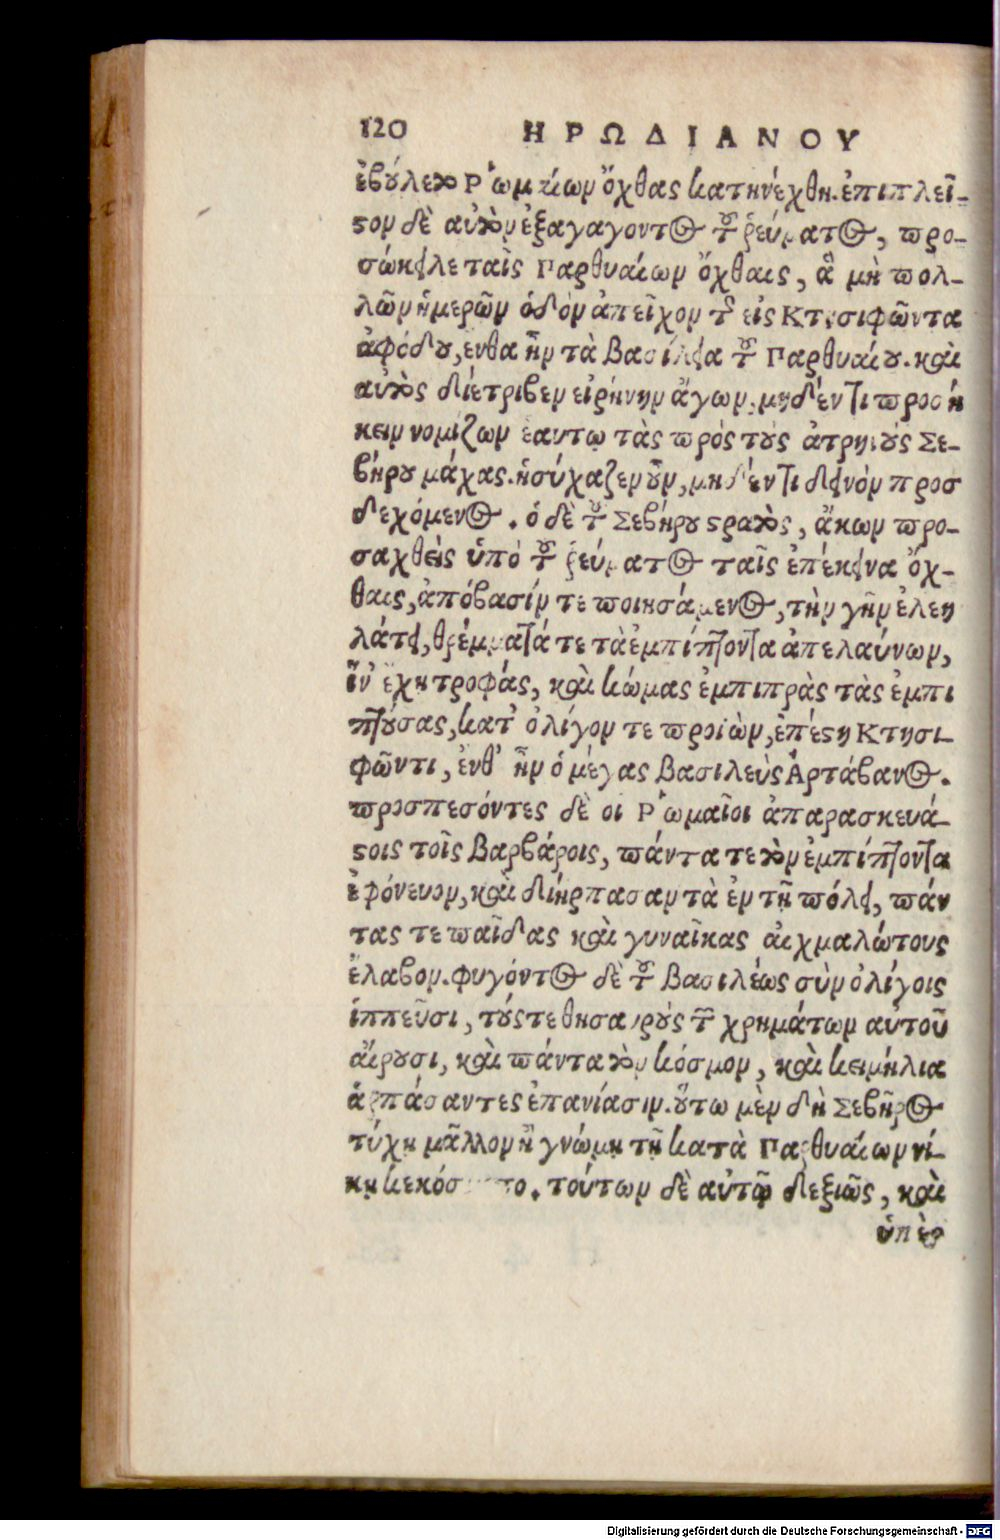 120 ΗΡΩΔΙΑΝΟΥ
ἐβούλετο Ῥωμαίων ὄχθας κατηνέχθη. ἐπιπλεῖ-
στον δὲ αὐτὸν ἐξαγαγόντος τοῦ ῥεύματος, προ-
σώκειλε ταῖς Παρθυαίων ὄχθαις, ἃ μὴ πολ-
λῶν ἡμερῶν ὁδὸν ἀπεῖχον τῆς εἰς Κτησιφῶντα
ἀφόδου, ἔνθα ἦν τὰ βασίλεια τοῦ Παρθυαίου. καὶ
αὐτὸς διέτριβεν εἰρήνην ἄγων, μηδέν τι προσή
κειν νομίζων ἑαυτῷ τὰς πρὸς τοὺς ἀτρηνοὺς Σε-
βήρου μάχας. ἡσύχαζεν οὖν, μηδέν τι δεινὸν προσ
δεχόμενος. ὁ δὲ τοῦ Σεβήρου στρατὸς, ἄκων προ-
σαχθεὶς ὑπὸ τοῦ ῥεύματος ταῖς ἐπέκεινα ὄχ-
θαις, ἀπόβασίν τε ποιησάμενος, τὴν γῆν ἐλεη
λάτει, θρέμματά τε τὰ ἐμπίπτοντα ἀπελαύνων,
ἵν' ἔχῃ τροφάς, καὶ κώμας ἐμπιπρὰς τὰς ἐμπι
πτούσας, κατ' ὀλίγον τε προϊὼν, ἐπέστη Κτησι-
φῶντι, ἐνθ' ἦν ὁ μέγας βασιλεὺς Ἀρτάβανος.
προσπεσόντες δὲ οἱ Ῥωμαῖοι ἀπαρασκευά-
στοις τοῖς βαρβάροις, πάντα τε τὸν ἐμπίπτοντα
ἐφόνευον, καὶ διήρπασαν τὰ ἐν τῇ πόλει, πάν
τας τε παῖδας καὶ γυναῖκας αἰχμαλώτους
ἔλαβον. φυγόντος δὲ τοῦ βασιλέως σὺν ὀλίγοις
ἱππεῦσι, τούς τε θησαυροὺς τῶν χρημάτων αὐτοῦ
αἴρουσι, καὶ πάντα τὸν κόσμον, καὶ κειμήλια
ἁρπάσαντες ἐπανίασιν. οὕτω μὲν δὴ Σεβῆρος
τύχῃ μᾶλλον ἢ γνώμῃ τῇ κατὰ Παρθυαίων νί-
κῃ κεκόσ to. τούτων δὲ αὐτῷ δεξιῶς, καὶ
ὑπὲρ
Digitalisierung gefördert durch die Deutsche Forschungsgemeinschaft - DFG